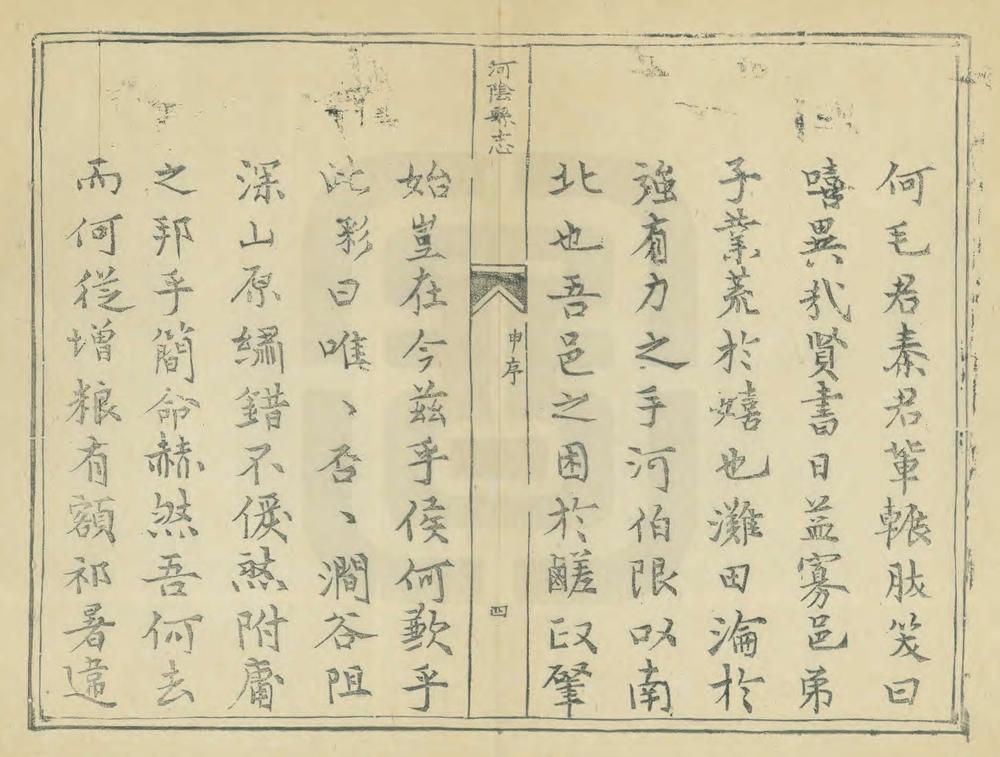 何毛君秦君輩輾肰笑曰
嘻異哉賢書日益寡邑弟
子業荒於嬉也灘田淪於
強有力之手河伯限以南
北也吾邑之困於鹺政肇
河陰縣志
申序
四
始豈在今茲乎侯何歎乎
此彩曰唯、否、澗谷阻
深山原繡錯不儼然附庸
之邦乎簡命赫然吾何去
而何從增粮有額祁暑違